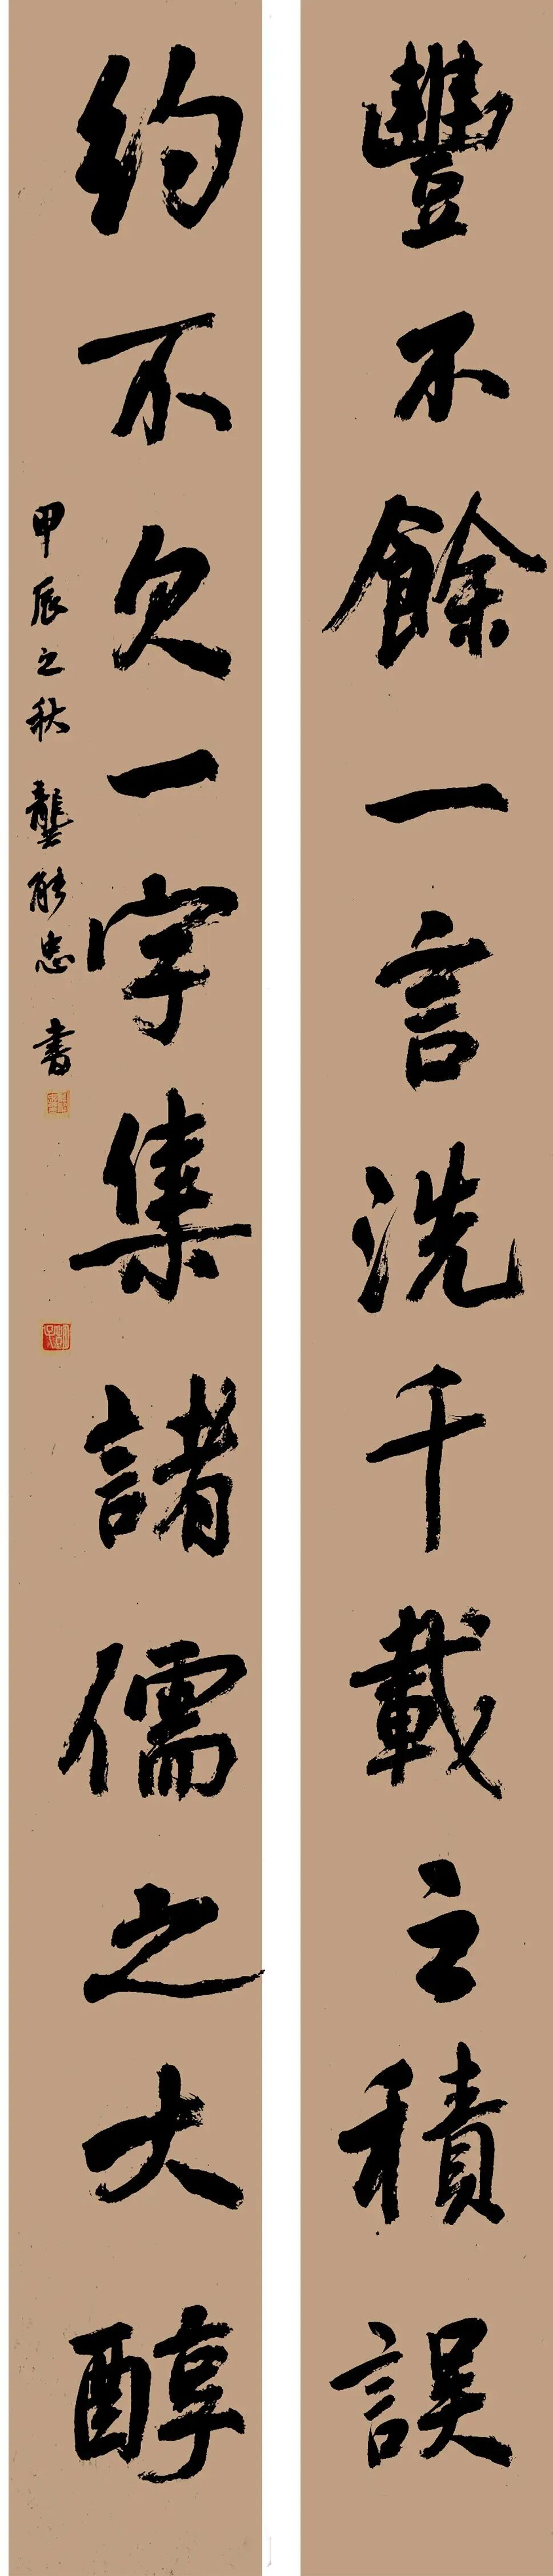 豐不餘一言洗千載之積誤
約不欠一字集諸儒之大醇
甲辰之秋 龔能忠 書